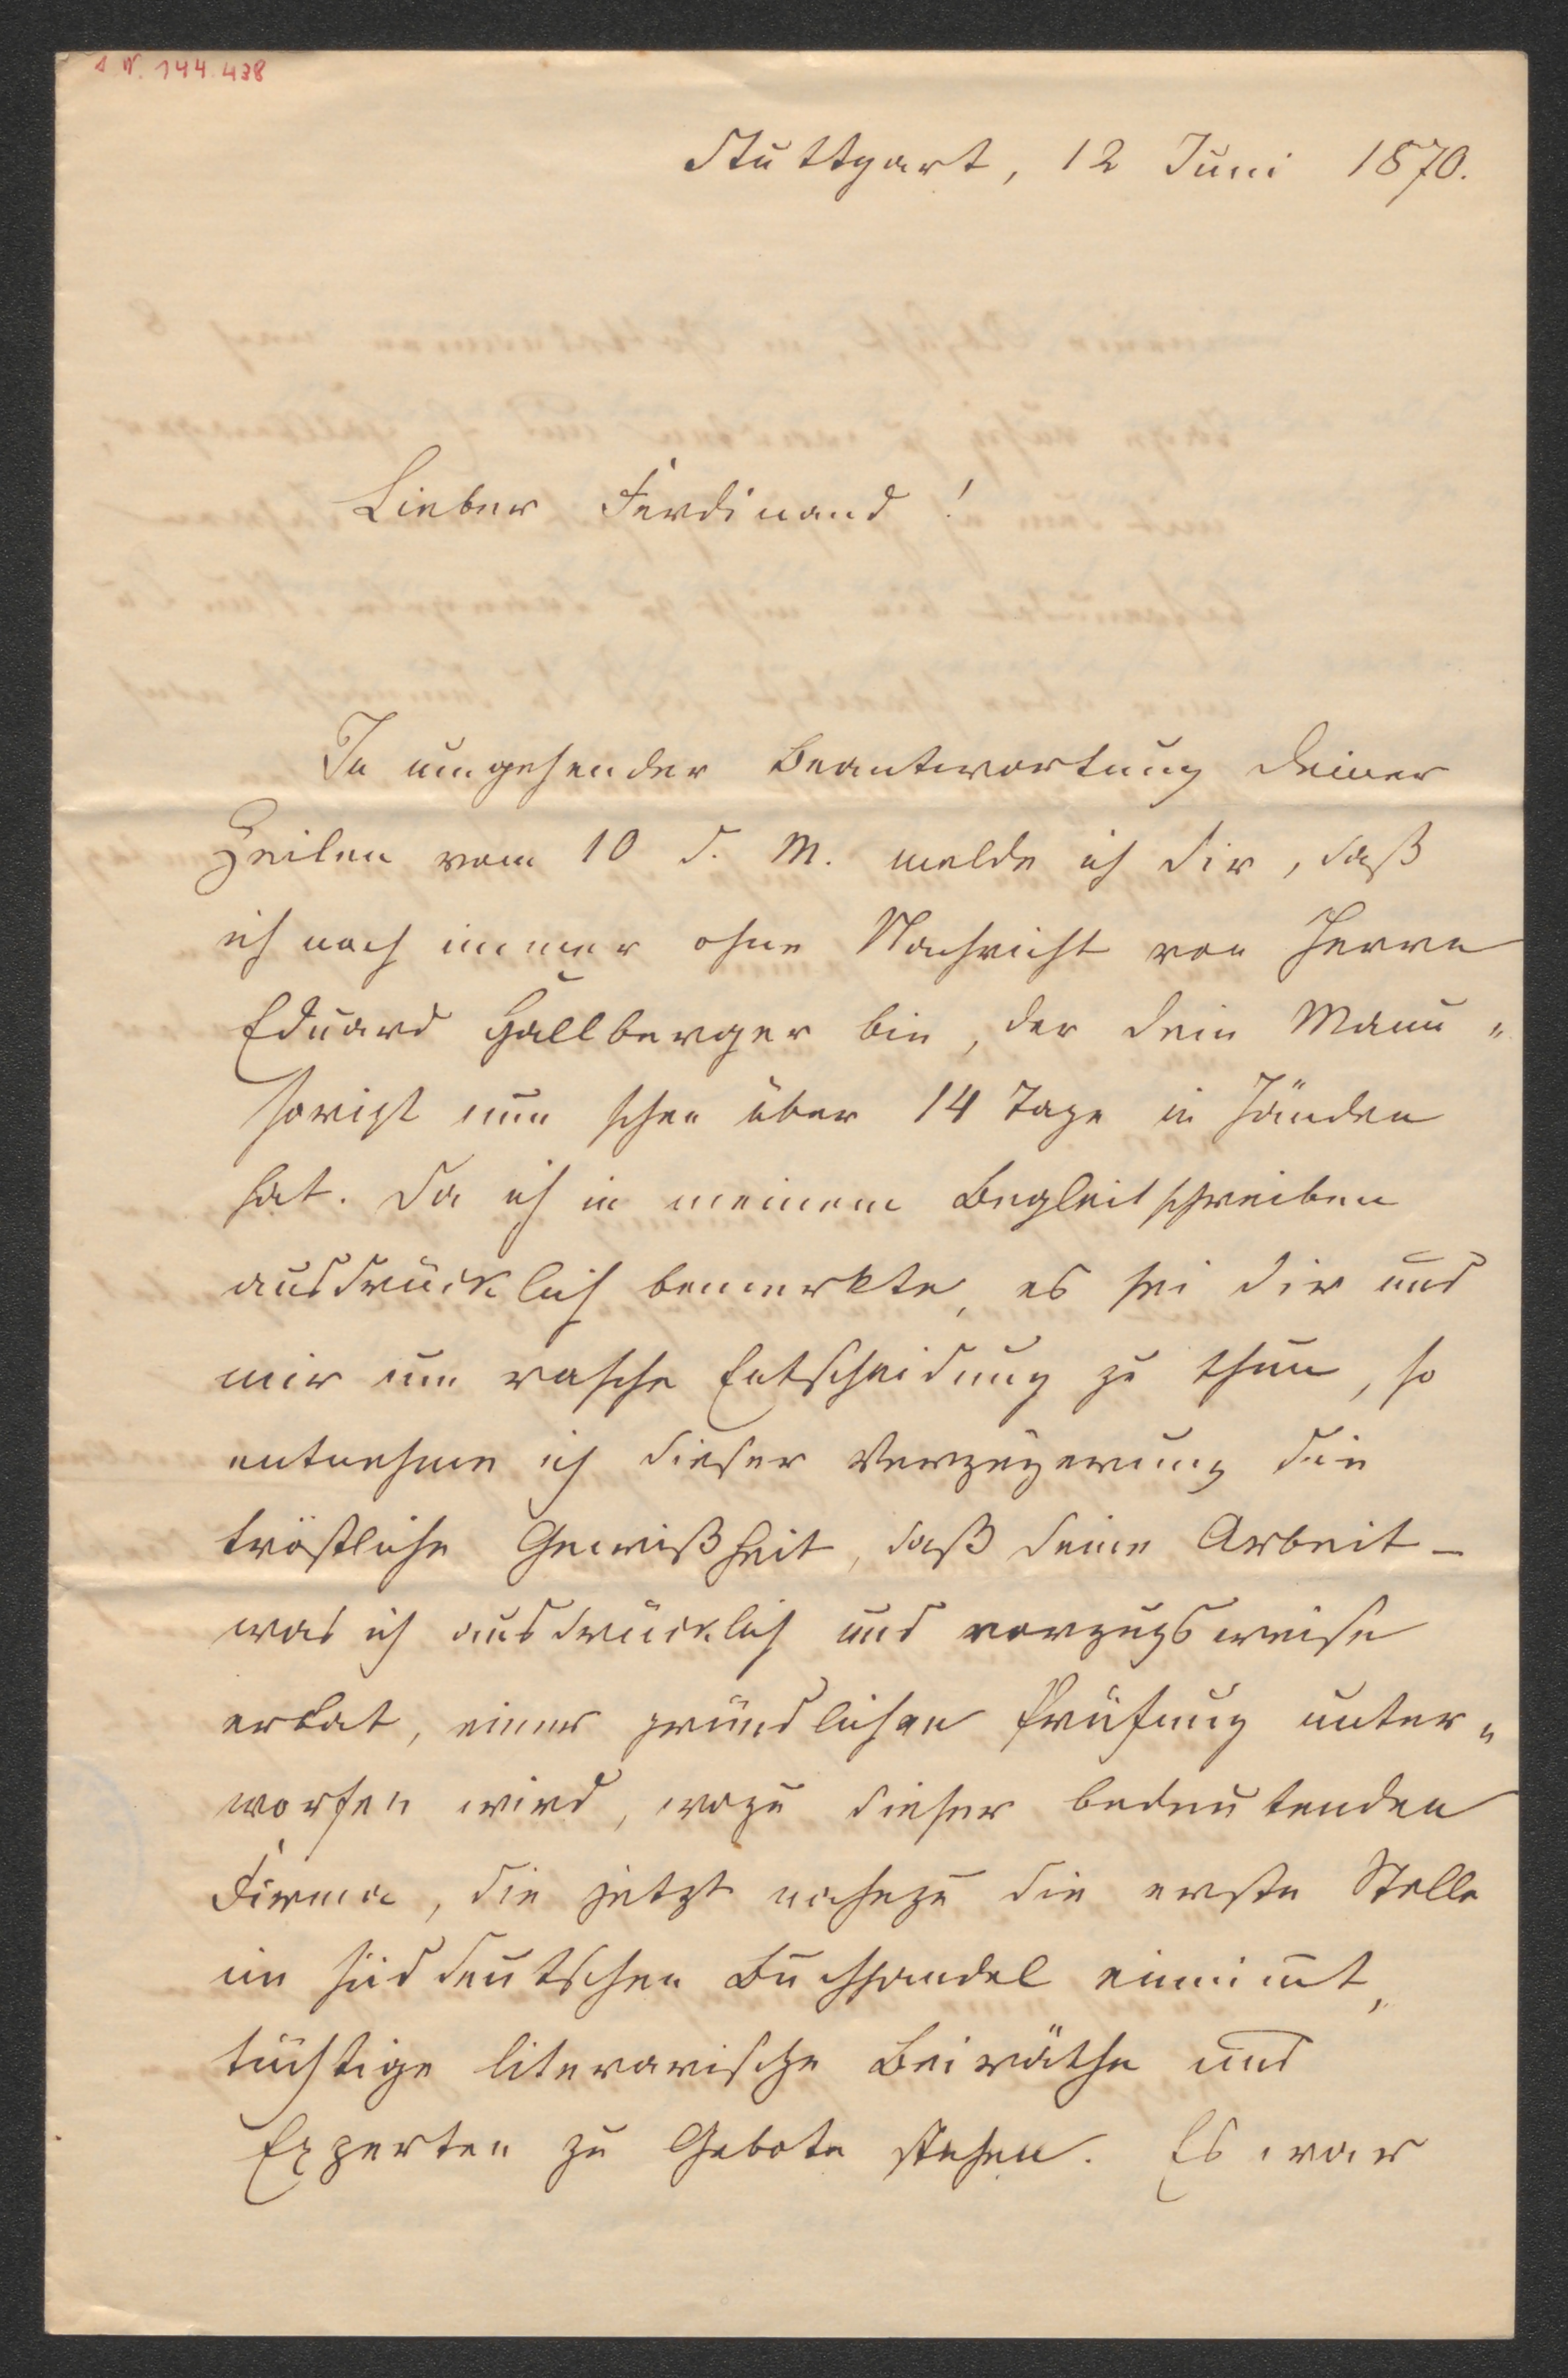 I. N. 144.438
Stuttgart, 12 Juni 1870.
Lieber Ferdinand!
In umgehender Beantwortung Deiner
Zeilen vom 10 d. M. melde ich Dir, daß
ich noch immer ohne Nachricht von Herrn
Eduard Hallberger bin, der Dein Manu-
script nun schon über 14 Tage in Händen
hat. Da ich in meinem Begleitschreiben
ausdrücklich bemerkte, es sei Dir und
mir um rasche Entscheidung zu thun, so
entnehme ich dieser Verzögerung die
tröstliche Gewißheit, daß Deine Arbeit –
was ich ausdrücklich und vorzugsweise
erbat, einer gründlichen Prüfung unter-
worfen wird, wozu dieser bedeutenden
Firma, die jetzt nahezu die erste Stelle
im süddeutschen Buchhandel einnimt,
tüchtige literarische Beiräthe und
Experten zu Gebote stehen. Es war